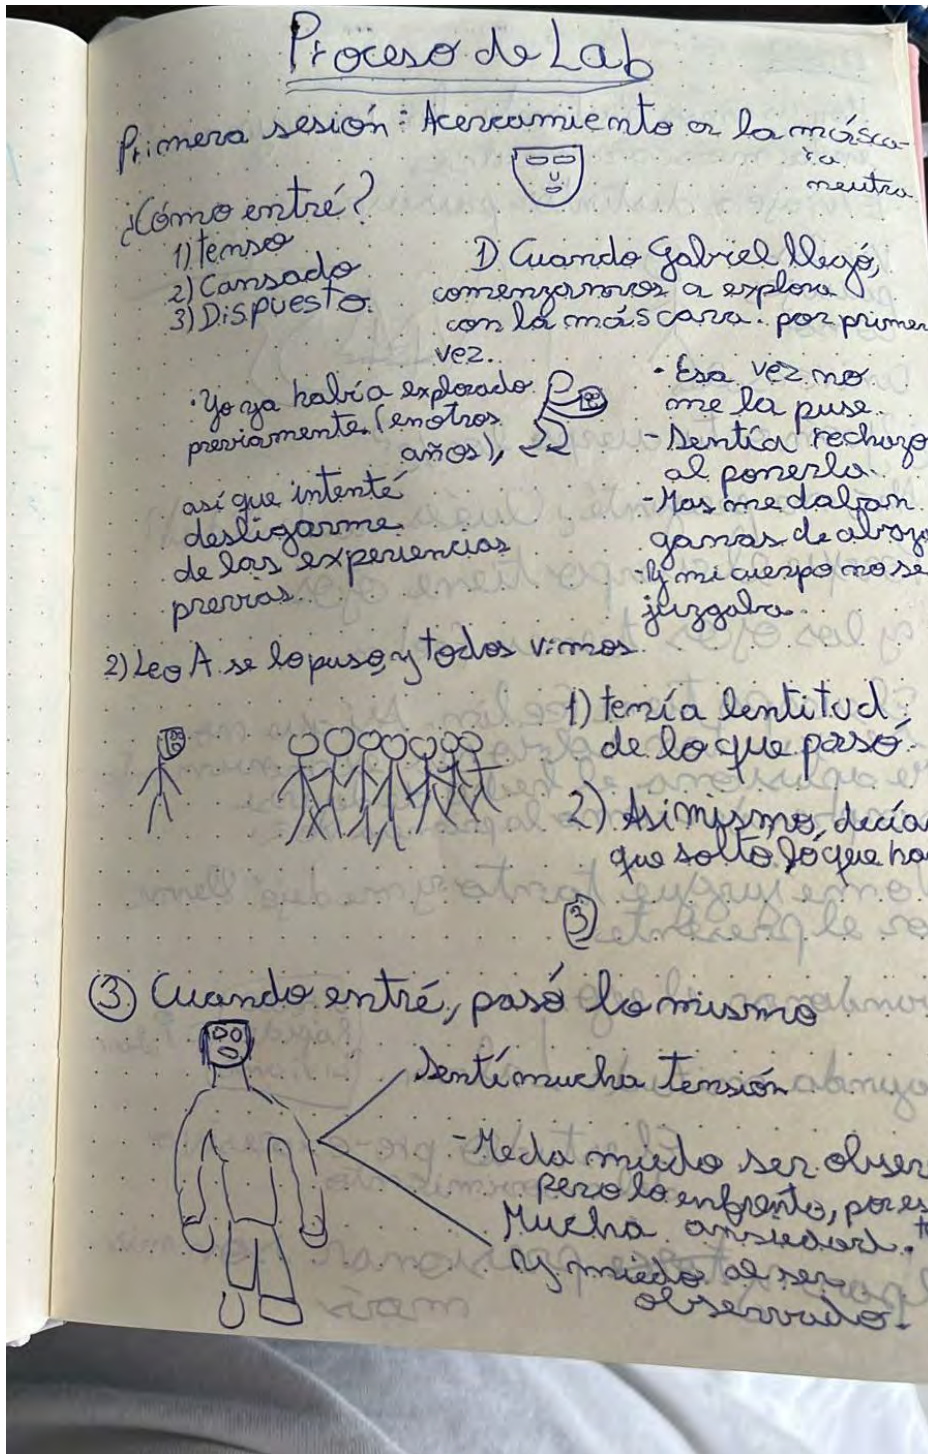 Proceso de Lab
Primera sesión: Acercamiento a la másca-
ra
neutra.
¿Cómo entré?
1) tenso
2) Cansado
3) Dispuesto.
1) Cuando Gabriel llegó,
comenzamos a explora
con la máscara. por primer
vez..
· Yo ya había explorado
previamente (en otros
años),
así que intenté
desligarme
de las experiencias
previas.
· Esa vez no
me la puse.
- Sentía rechazo
al ponerla.
- Mas me daban
ganas de
- Y mi cuerpo no se
juzgaba.
2) Leo A. se lo puso, y todos vimos.
1) tenía lentitud
de lo que pasó.
2) Asimismo, decía
que soltó lo que ha
3
3 Cuando entré, pasó lo mismo
Sentí mucha tensión
- Me da miedo ser obser
pero lo enfrento, por es
Mucha ansiedad.
y miedo al ser
observado.